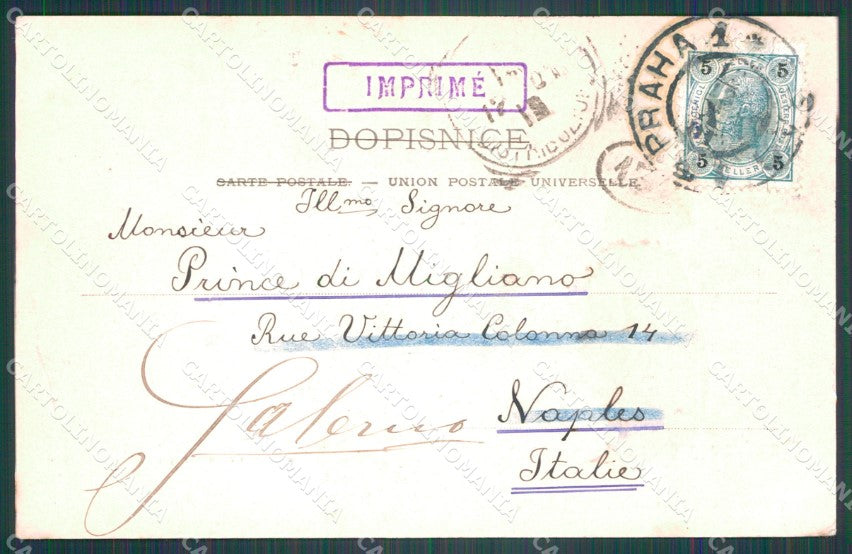 IMPRIMÉ
PRAHA 1
5 5
5 HELLER 5
DOPISNICE
CARTE POSTALE. — UNION POSTALE UNIVERSELLE.
Illmo Signore
Monsieur
Prince di Migliano
Rue Vittoria Colonna 14
Salerno
Naples
Italie
CARTOLINOMANIA